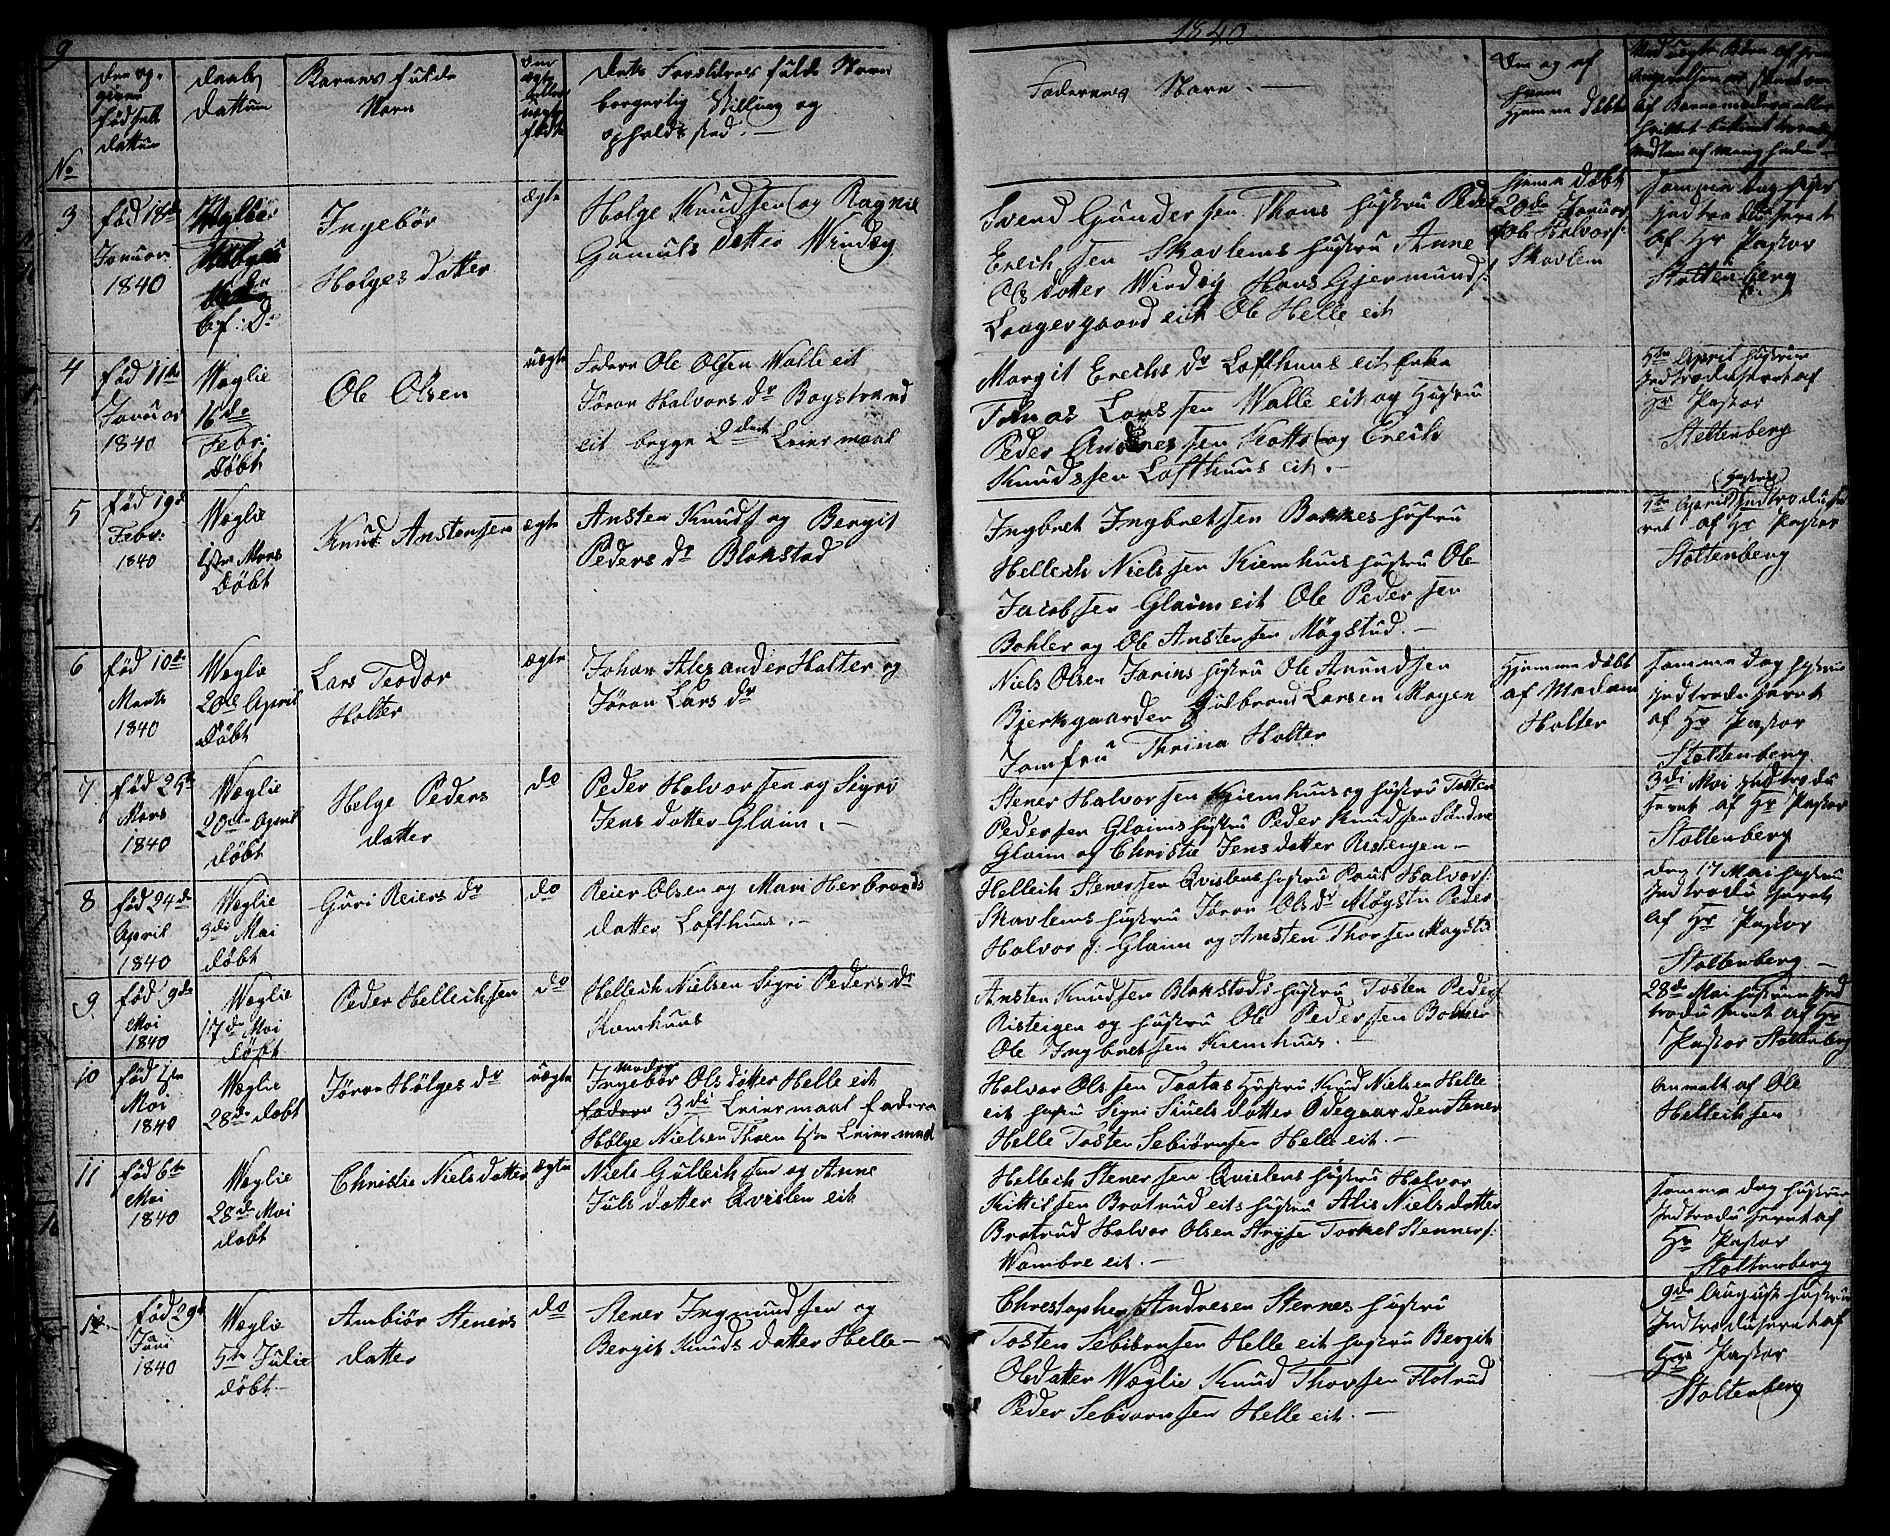 9
1840
No
den op-
given
födsels
dattum
daabs
dattum
Barnes fulde
Navn
Om
ægte
eller
uægte
födte
dets Forældres fulde Navn
borgerlig Stilling og
opholds sted. —
Faderenes Navn. —
Om og af
hvem
hjemme döbte
3
föd 18de
Januar
1840
Weglie
bef: Do
Ingebör
Holges datter
ægte
Holge Knudsen og Ragnil
Gamuls datter Windeg
Svend Gundersen Thons hustru Peder
Erichsen Skavlems hustru Anne
Ols datter Windeg Hans Gjermunds:
Laagergaard eit Ole Helle eit
hjemme döbt
20de Januar
af Ole Halvors:
Skavlem
samme dag hustr
Indtroduseret
af Hr Pastor
Stoltenberg
4
föd 11te
Januar
1840
Weglie
16de
Febr:
döbt
Ole Olsen
uægte
Fadern Ole Olsen Walle eit
Jöran Halvors dr Bogstrand
eit begge 2det Leiermaal
Margit Erichs dr Lofthuus eit Enke
Tomas Larssen Walle eit og Hustru
Peder Andersen Kotte og Erich
Knudssen Lofthuus eit. —
5te April hustruen
Indtroduseret af
Hr Pastor
Stoltenberg
5
föd 19de
Febr:
1840
Weglie
1ste Mars
döbt
Knud Anstensen
ægte
Ansten Knuds og Bergit
Peders dr Blakstad
Ingbret Ingbretsen Bakkes hustru
Hellech Nielssen Kiemhuus hustru Ole
Jacobsen Glaim eit Ole Pedersen
Bohler og Ole Anstensen Mögstud. —
(hustru)
1te April Indtroduse
ret af Hr Pastor
Stoltenberg
6
föd 10de
Marts
1840
Weglie
20de April
döbt
Lars Teodor
Holter
ægte
Johan Alexander Holter og
Jöran Lars dr
Niels Olsen Jarins hustru Ole Anundsen
Bjerkgaarden Gulbrand Larsen Mogen
Jomfru Thrina Holter
Hjemme döbt
af Madam
Holter
samme dag hustru
Indtroduseret
af Hr Pastor
Stoltenberg.
7
föd 25de
Mars
1840
Weglie
20de April
döbt
Helge Peders
datter
do
Peder Halvorsen og Sigri
Jens datter Glaim. —
Stener Halvorsen Kiemhuus og hustru Tosten
Pedersen Glaims hustru Peder Knudsen Söndre
Glaim og Christie Jens datter Risteigen —
3di Mai Indtrodu
seret af Hr Pastor
Stoltenberg
8
föd 24de
April
1840
Weglie
3di Mai
döbt
Guri Reiers dr
do
Reier Olsen og Mari Herbrands
datter Lofthuus. —
Hellech Stenersen Qvislens hustru Paul Halvors:
Skavlems hustru Jöran Ols dr Mögsten Peder
Halvors: Glaim og Ansten Thorsen Mogstd
den 17 Mai hustru
Indtroduseret
af Hr Pastor
Stoltenberg —
9
föd 9de
Mai
1840
Weglie
17de Mai
döbt
Peder Hellechsen
do
Hellech Nielsen Sigri Peders dr
Kemhuus
Ansten Knudsen Blakstads hustru Tosten Peders
Risteigen og hustru Ole Pedersen Bohler
Ole Ingbretsen Kiemhuus. —
28de Mai hustruen Ind
troduseret af Hr
Pastor Stoltenberg
10
föd 1ste
Mai
1840
Weglie
28de döbt
Jöran Holges dr
uægte
Moder
Ingebör Ols datter Helle eit
fadern 3di Leiermaal fadern
Holge Nielsen Thoen 1ste Leiermaal
Halvor Olssen Taatas hustru Knud Nielsen Helle
eit hustru Sigri Siuels datter Ödegaarden Stener
Helle Tosten Sebiörnsen Helle eit. —
Anmelt af Ole
Hellechsen
11
föd 6te
Mai
1840
Weglie
28de Mai
döbt
Christie Niels datter
ægte
Niels Gullechsen og Anne
Juls datter Qvislen eit
Hellech Stenersen Qvislens hustru Halvor
Kittilsen Bratrud eits hustru Alis Niels datter
Bratrud Halvor Olsen Stryse Torkel Stenners:
Wambre eit. —
samme dag hustruen
Indtroduseret af
Hr Pastor
Stoltenberg
12
föd 29de
Juni
1840
Weglie
5te Julie
döbt —
Ambiör Steners
datter
do
Stener Ingmundsen og
Bergit Knuds datter Helle —
Chrestopher Andresen Sternes hustru
Tosten Sebiörnsen Helle eit hustru Bergit
Olsdatter Weglie Knud Thorsen Flotrud
Peder Sebiörnsen Helle eit. —
9de August hustruen
Indtroduseret af
Hr Pastor
Stoltenberg